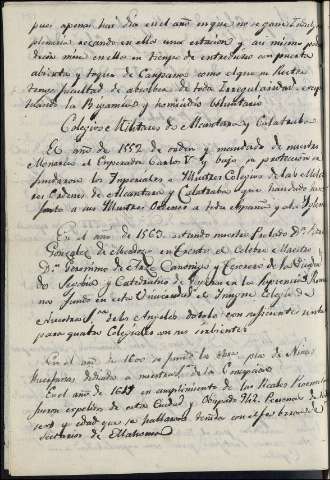 pues apenas hai dia en el año en que no se gane Indulg.
plenaria rezando en ella una estacion y asi mismo pueden
decir misa en ella en tiempo de entredicho con puerta
abierta y toque de Campana como el que su Rector
tenga facultad de absolver de toda Irregularidad, excep
tuando la Bigamia y homicidio Voluntario
Colegios Militares de Alcantara y Calatraba
El año de 1552 de orden y mandado de nuestro
Monarca el Emperador Carlos V. y bajo su proteccion se
fundaron los Imperiales e Ilustres Colegios de las Milita
res Ordenes de Alcantara y Calatraba que han dado
a sus Ilustres Ordenes a toda España y a la Iglesia
En el año de 1563 estando nuestro Prelado D.
Gonzalez de Mendoza en Trento el Celebre Maestro
D. Geronimo de Canonigo y Tesorero de la
de Segobia y Catedratico de en la
no fundo en esta Universidad el Insigne Colegio de
Nuestra S.ra de los Angeles dotado con suficiente renta
para quatro Colegiales con sus sirbientes
En el año de 1600 se fundo la obra pia de Niñas
Huerfanas dedicado a nuestra S.ra de la Concepcion
En el año de 1611 en cumplimiento de las Reales
fueron expelidos de esta Ciudad y Obispado 942 Personas de to
sexo y edad que se hallaron
Sectarios de Mahoma